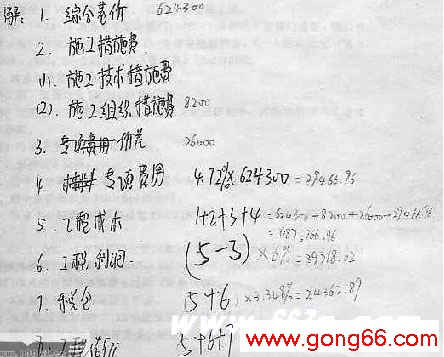 解: 1. 综合基价 624300
2. 施工措施费.
(1). 施工技术措施费
(2). 施工组织措施费 8200
3. 专项费用 价差 26000
4 专项费用 4.72%×624300=29466.96
5. 工程成本 1+2+3+4=624300+8200+26000+29466.96
=687,966.96
6. 工程利润. (5-3)×6%=39718.02
7. 税金 (5+6)×3.348%=24362.89
8. 工程造价 5+6+7
www.gong66.com